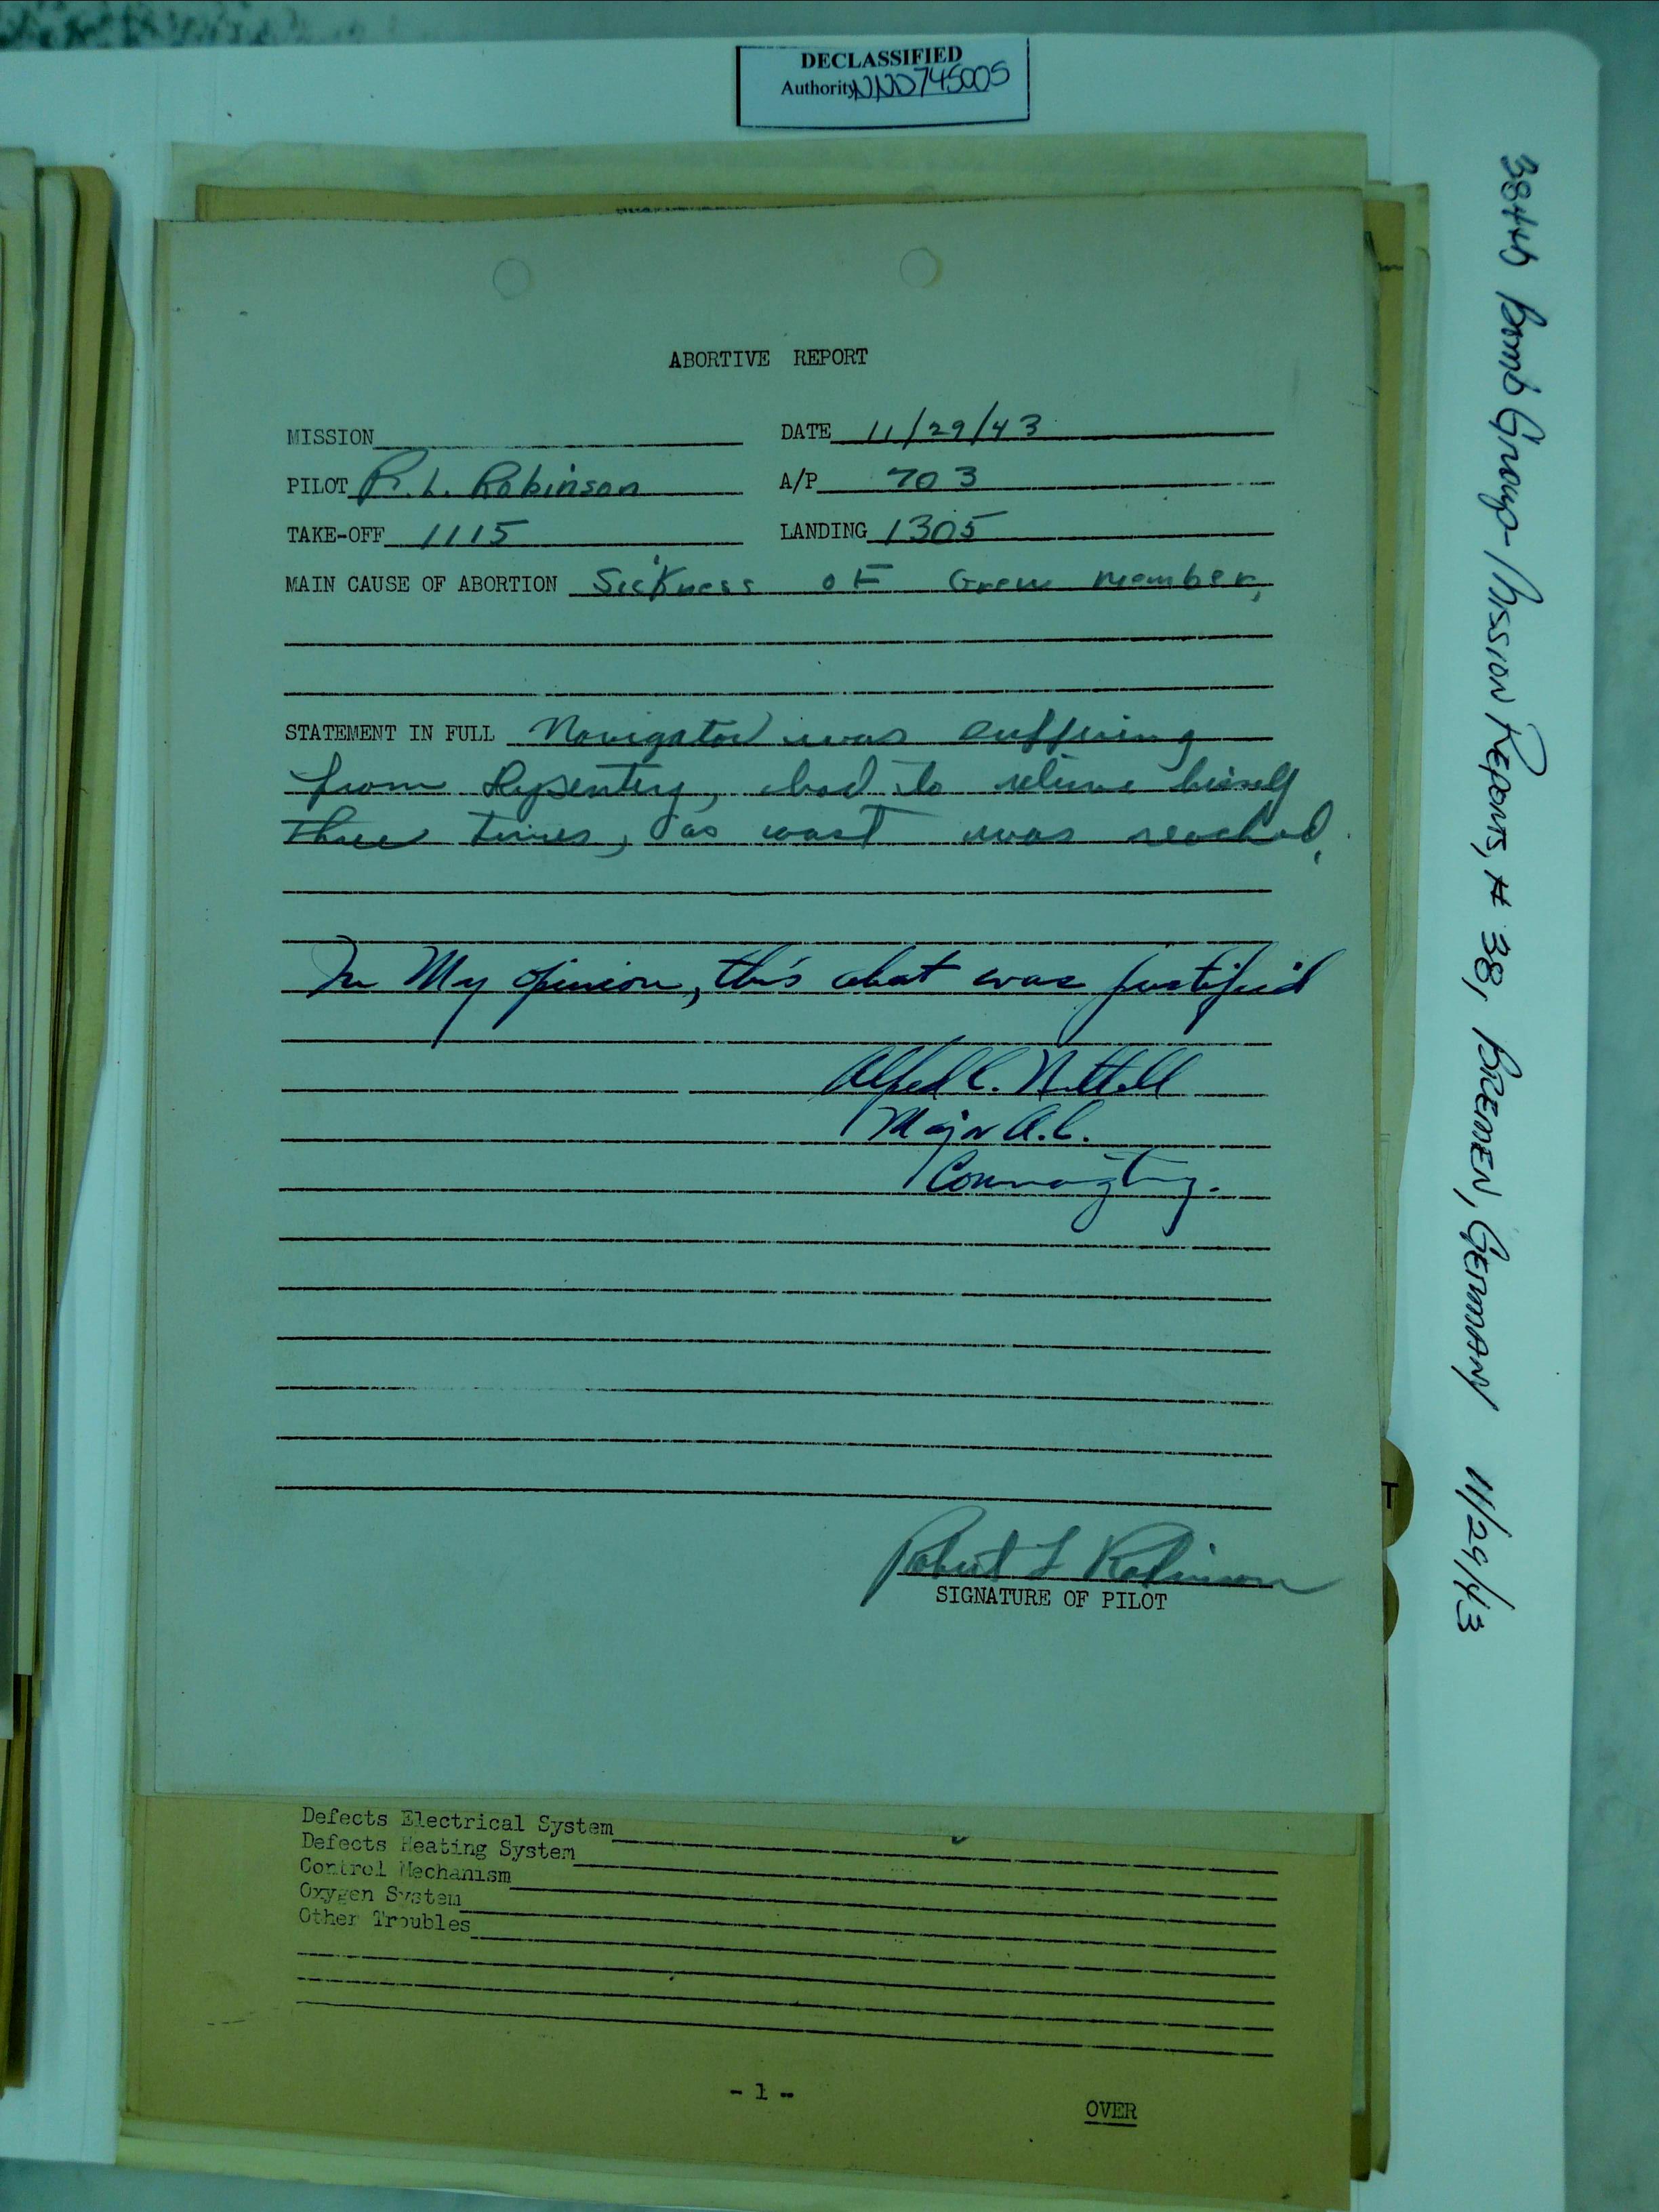 DECLASSIFIED
Authority NND 745005
ABORTIVE REPORT
MISSION
DATE 11/29/43
PILOT R. L. Robinson
A/P 703
TAKE-OFF 1115
LANDING 1305
MAIN CAUSE OF ABORTION Sickness of Crew member,
STATEMENT IN FULL Navigator was suffering
from Dysentery, had to relieve himself
three times, as coast was reached.
In My opinion, this abort was justified
Alfred C. Nuttall
Major A.C.
Commanding.
Robert L Robinson
SIGNATURE OF PILOT
Defects Electrical System
Defects Heating System
Control Mechanism
Oxygen System
Other Troubles
- 1 -
OVER
384th Bomb Group - Mission Reports, # 38, BREMEN, GERMANY 11/29/43
T